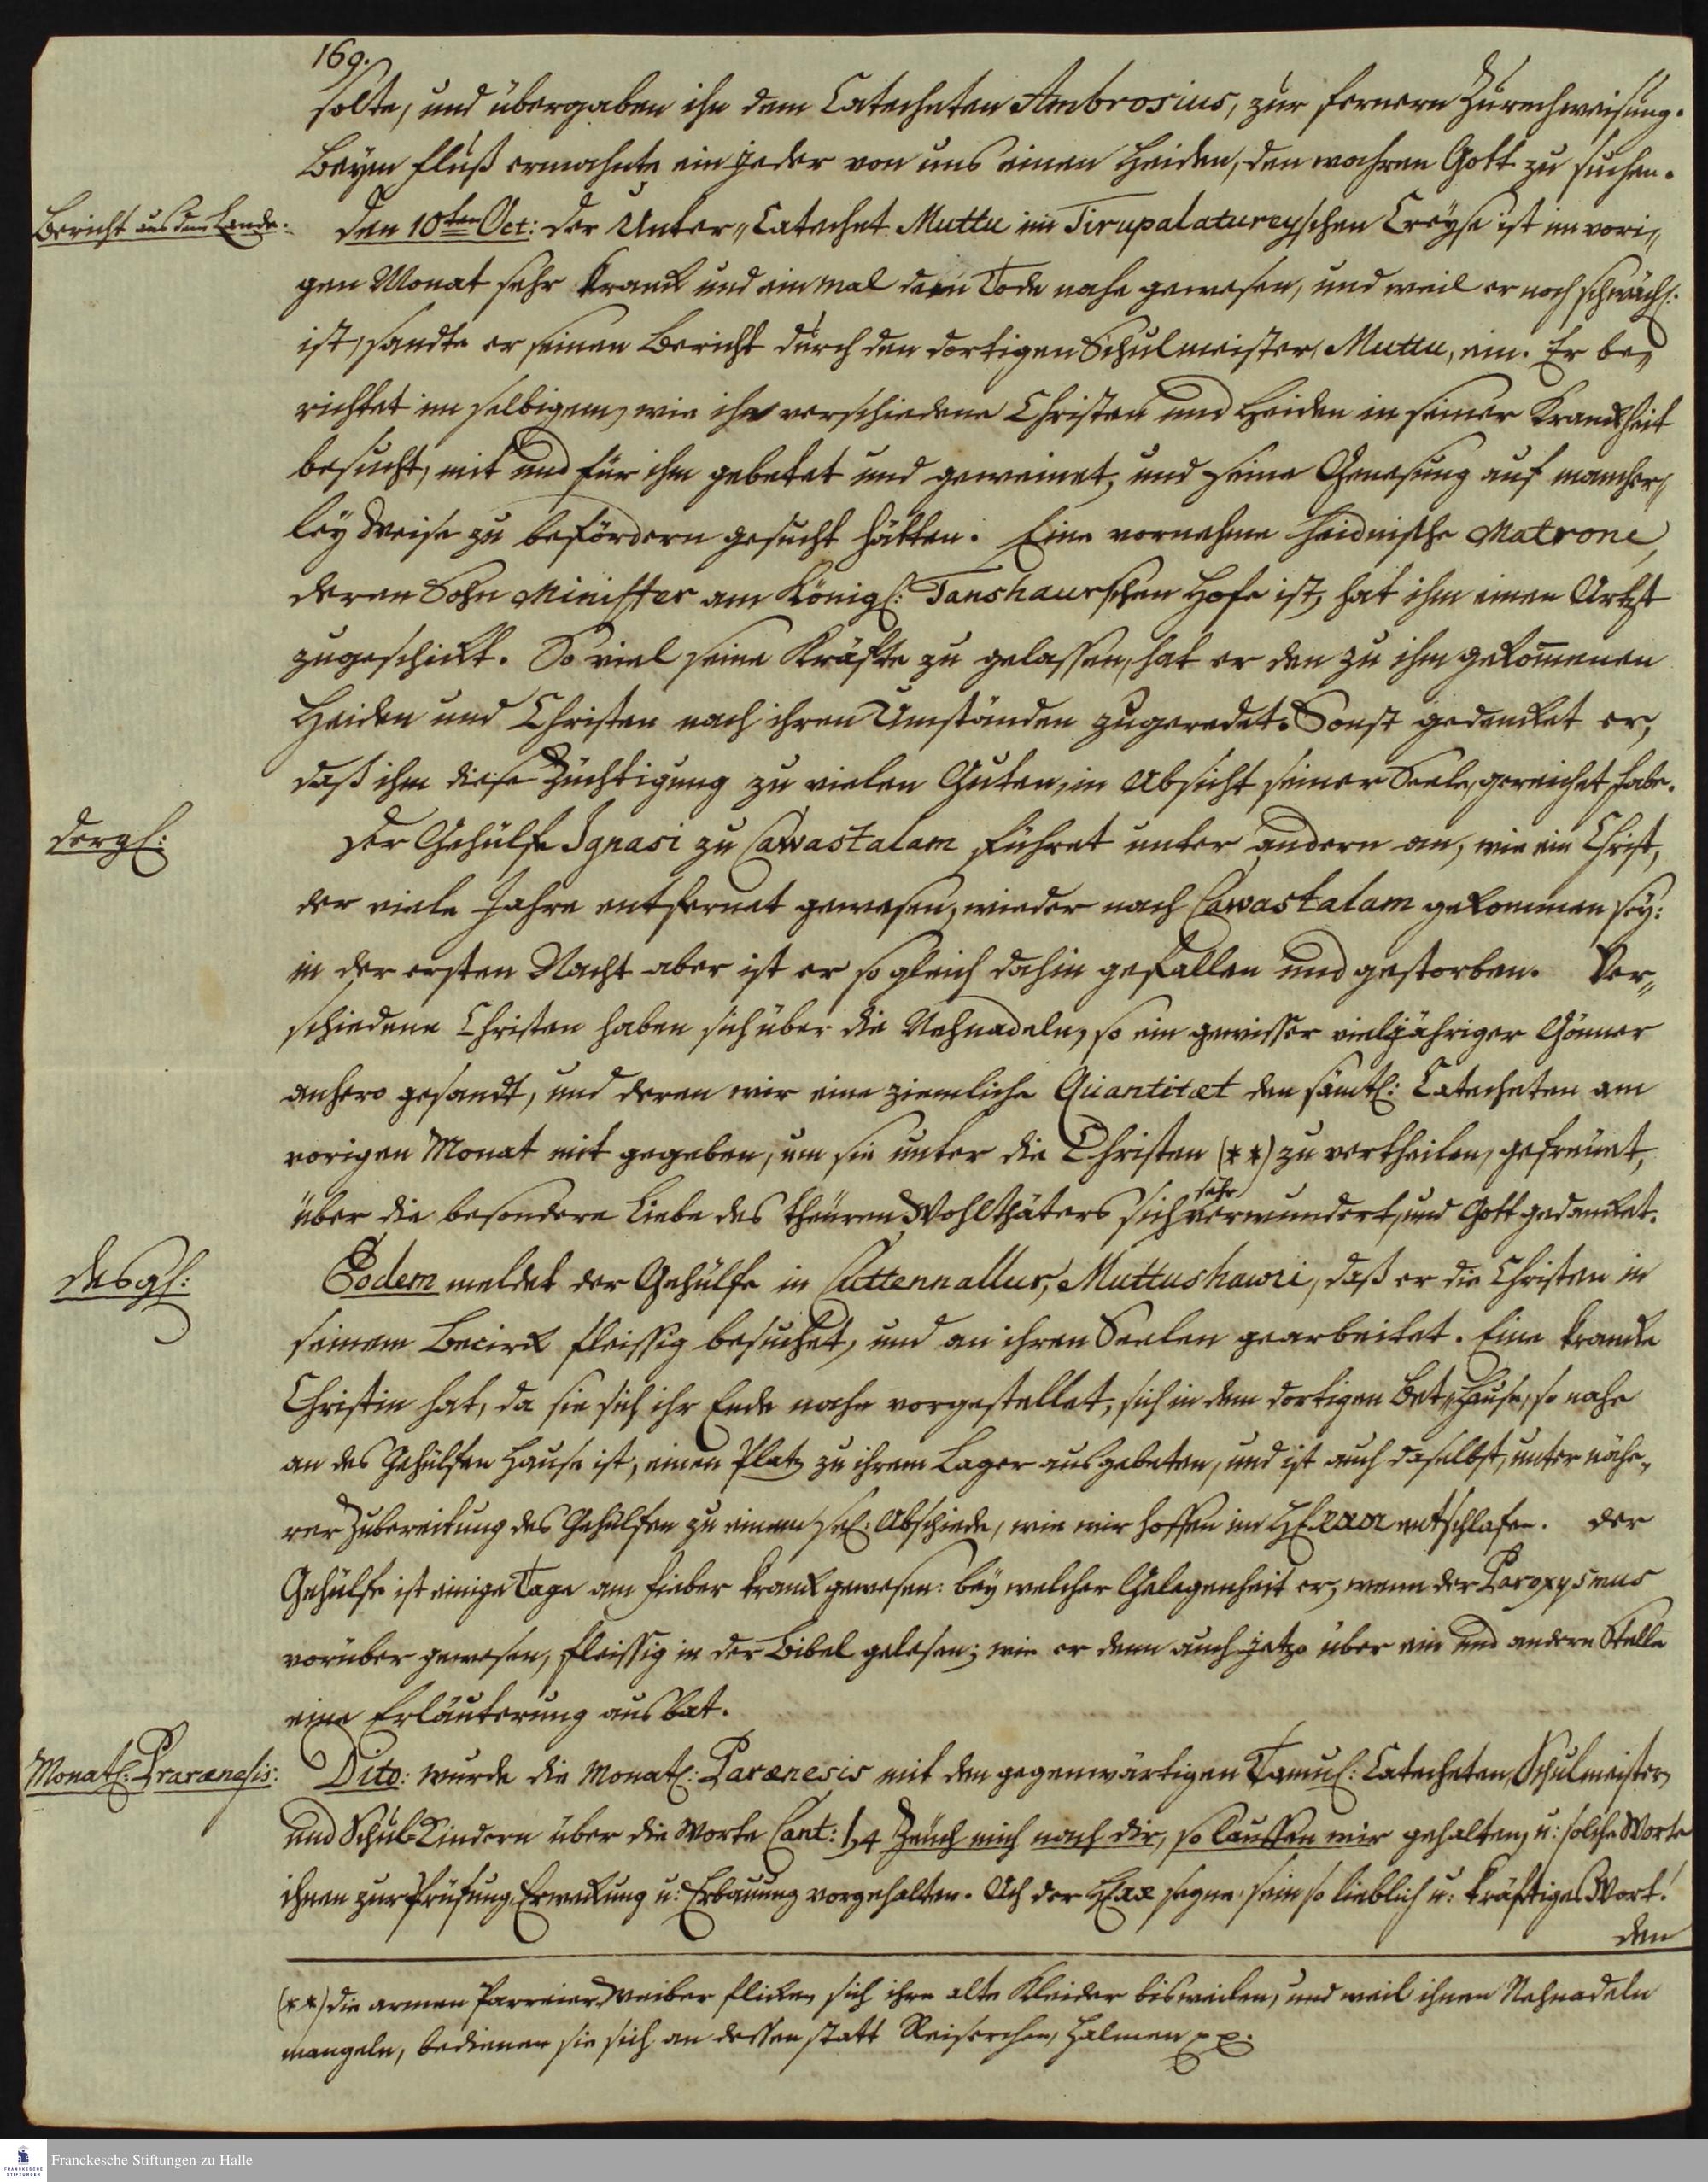 169.
solte, und übergaben ihn dem Catecheten Ambrosius, zur fernern Zurechweisung.
Beym Fluß ermahnte ein jeder von uns einen Heiden, den wahren Gott zu suchen.
Bericht aus dem Lande.
den 10ten Oct: Der Unter„Catechet Muttu im Tirupalatureyschen Creyse ist im vori„
gen Monat sehr kranck und einmal dem Tode nahe gewesen, und weil er noch schwächl:
ist, sandte er seinen Bericht durch den dortigen Schulmeister, Muttu, ein. Er be„
richtet in selbigem, wie ihn verschiedene Christen und Heiden in seiner Kranckheit
besucht, mit und für ihm gebetet und geweinet, und seine Genesung auf mancher„
ley Weise zu befördern gesucht hätten. Eine vornehme heidnische Matrone,
deren Sohn Minister am Königl: Tanshaurschen Hofe ist, hat ihm einen Artzt
zugeschickt. So viel seine Kräfte zu gelassen, hat er den zu ihm gekom̄enen
Heiden und Christen nach ihren Umständen zugeredet. Sonst gedencket er,
daß ihm diese Züchtigung zu vielen Guten, in Absicht seiner Seele, gereichet habe.
dergl:
Der Gehülfe Ignasi zu Cawastalam führet unter andern an, wie ein Christ,
der viele Jahre entfernet gewesen, wieder nach Cawastalam gekommen sey:
in der ersten Nacht aber ist er so gleich dahin gefallen und gestorben. Ver„
schiedene Christen haben sich über die Nehnadeln, so ein gewisser vieljähriger Gönner
anhero gesandt, und deren wir eine ziemliche Quantitæt den sämtl: Catecheten am
vorigen Monat mit gegeben, um sie unter die Christen (**) zu vertheilen, gefreuet,
über die besondere Liebe des theuren Wohlthäters sich sehr verwundert, und Gott gedancket.
desgl:
Eodem meldet der Gehülfe in Cuttennallur, Muttushawri, daß er die Christen in
seinem Becirk fleissig besuchet, und an ihren Seelen gearbeitet. Eine krancke
Christin hat, da sie sich ihr Ende nahe vorgestellet, sich in dem dortigen Bet„Hause, so nahe
an des Gehülfen Hause ist, einen Platz zu ihrem Lager ausgebeten, und ist auch daselbst, unter nähe„
rer Zubereitung des Gehülfen zu einem sel: Abschiede, wie wir hoffen im HErrn entschlafen. Der
Gehülfe ist einige Tage am Fieber kranck gewesen: bey welcher Gelegenheit er, wenn der Paroxysmus
vorüber gewesen, fleissig in der Bibel gelesen; wie er denn auch jetzo über ein und andere Stelle
eine Erläuterung ausbat.
Monatl: Praranesis:
Dito: wurde die Monatl: Parænesis mit den gegenwärtigen Tamul: Catecheten, Schulmeister,
und Schul-Kindern über die Worte Cant: 1,4 Zeuch mich nach dir, so lauffen wir gehalten, u: solche Worte
ihnen zur Prüfung, Erweckung u: Erbauung vorgehalten. Ach der HErr segne sein so lieblich u: kräftiges Wort!
den
(**) die armen Parreier Weiber flicken sich ihre alte Kleider bisweilen, und weil ihnen Nehnadeln
mangeln, bedienen sie sich an dessen statt Reiserchen, Halmen pp.
FRANCKESCHE
STIFTUNGEN
Franckesche Stiftungen zu Halle